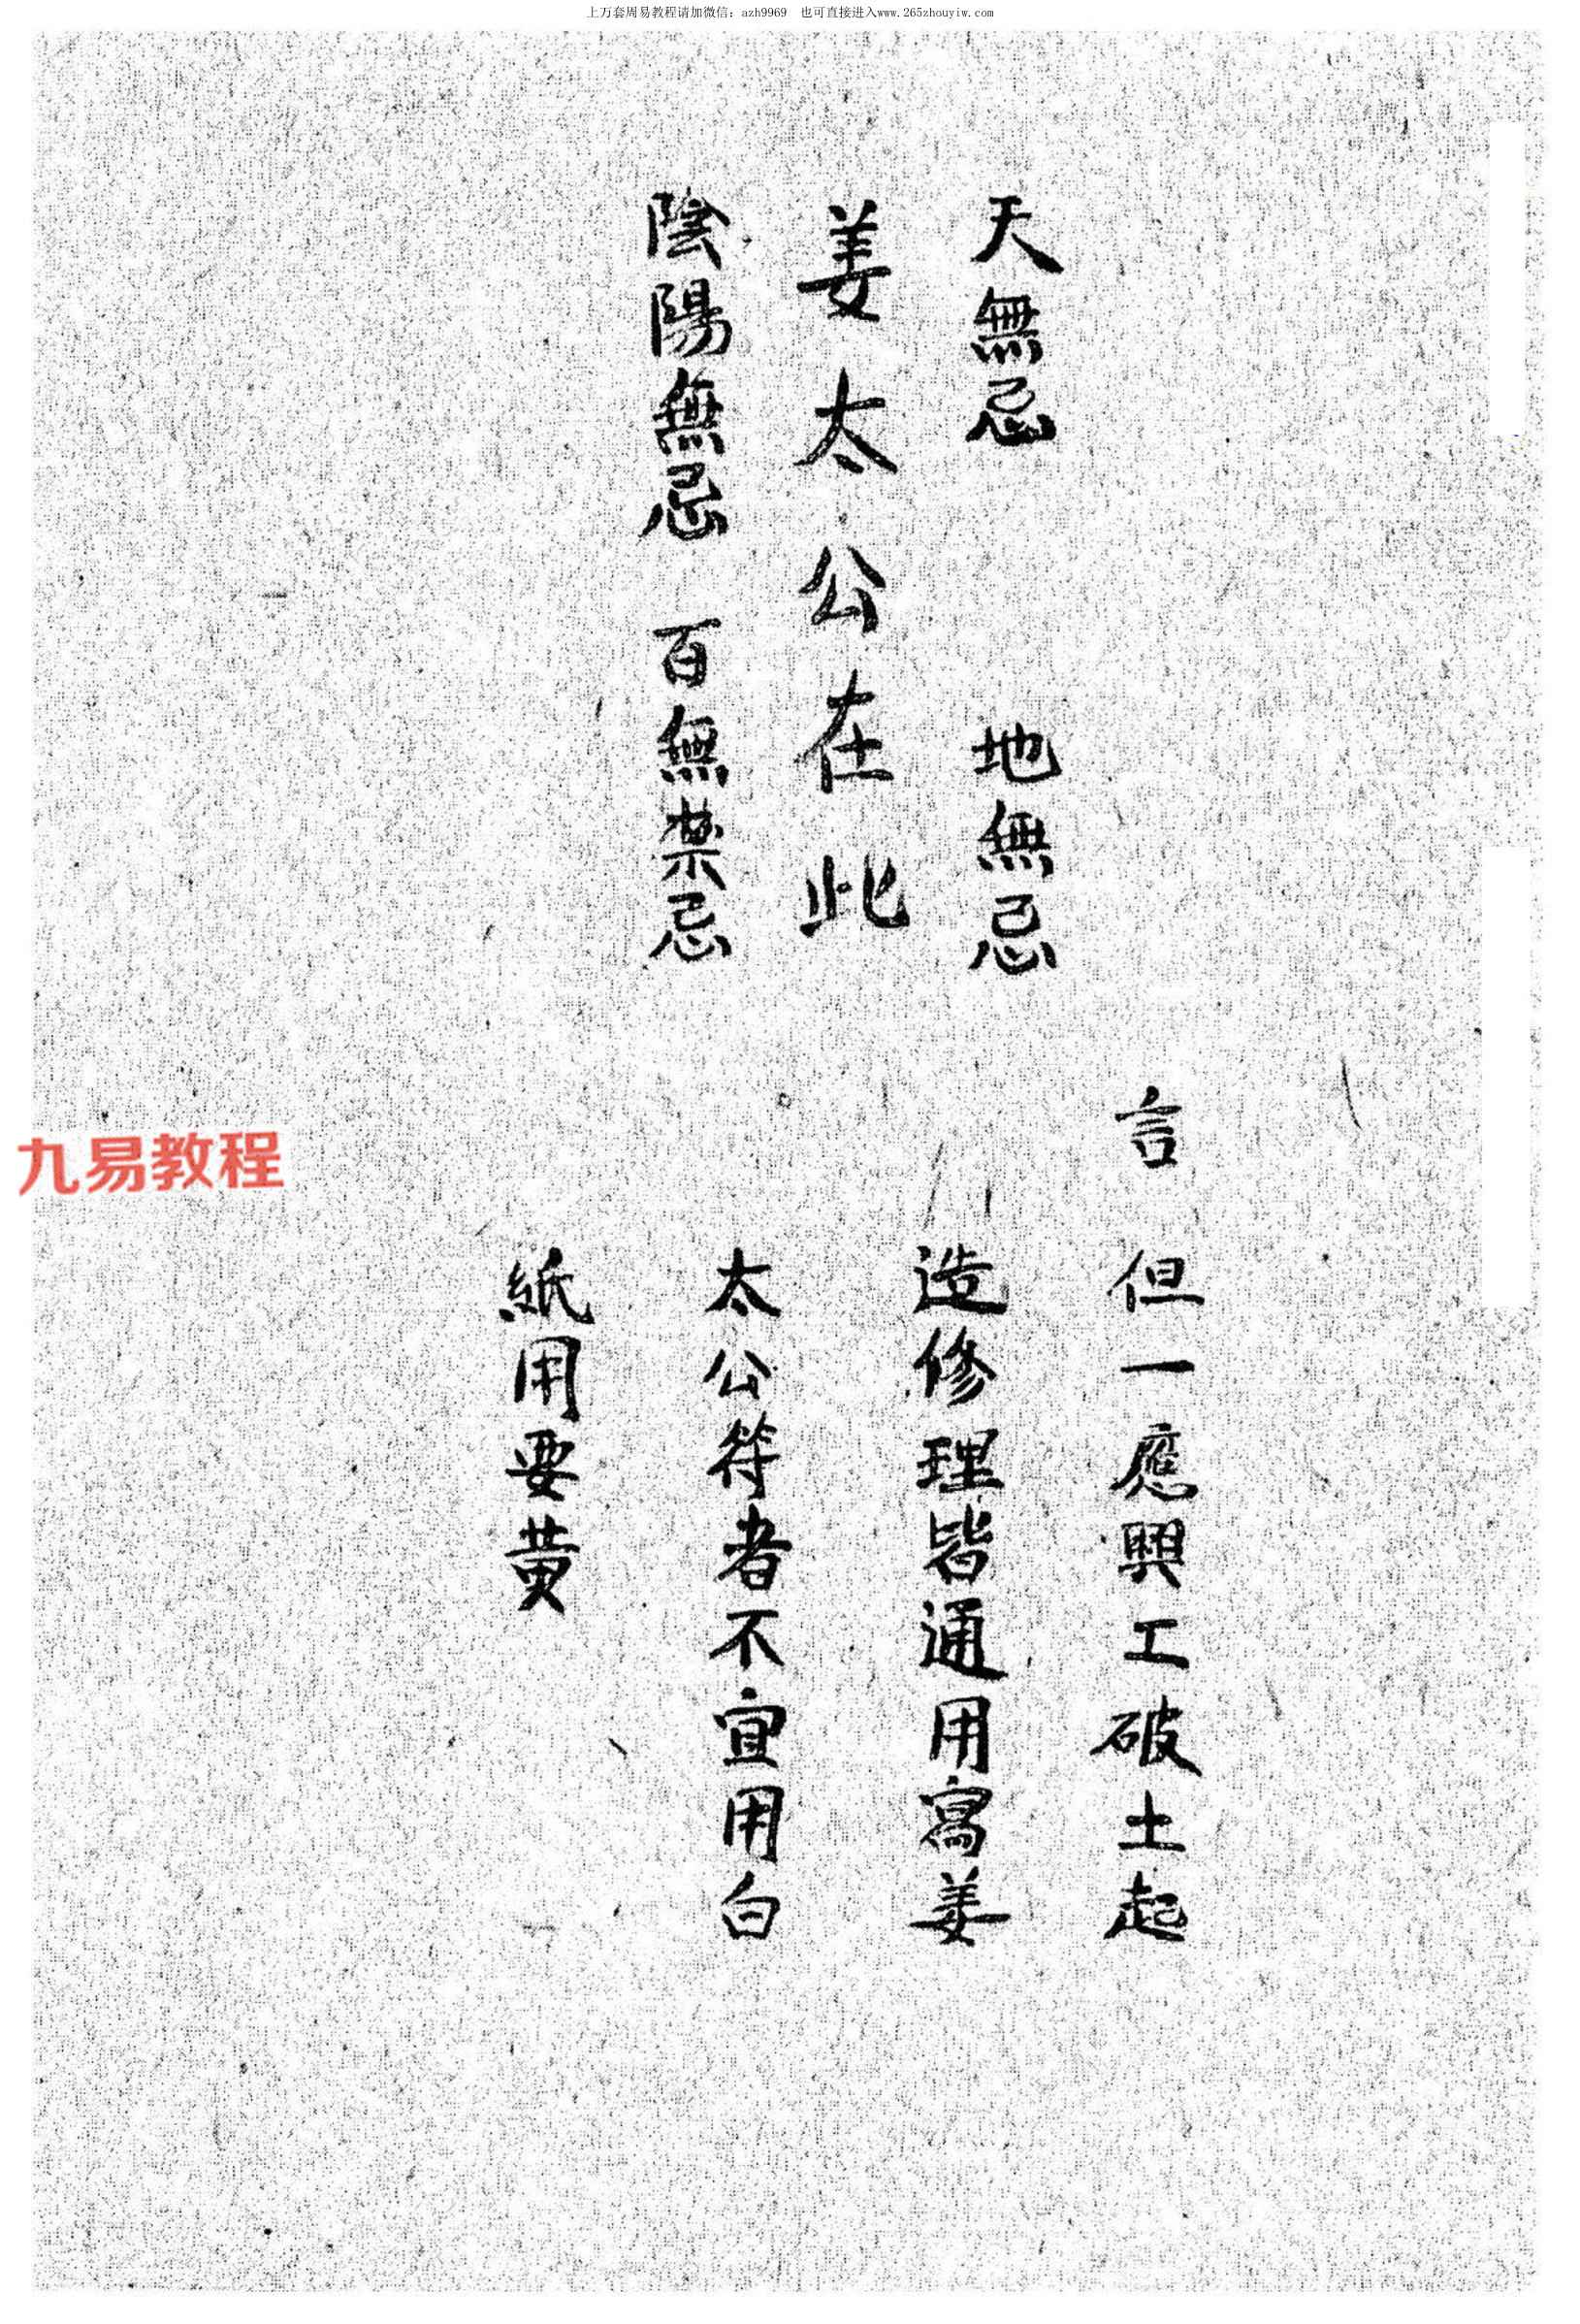 上万套周易教程请加微信：azh9969　也可直接进入www.265zhouyiw.com
天無忌　地無忌
姜太公在此
陰陽無忌　百無禁忌
言　但一應興工破土起
造修理皆通用寫姜
太公符者不宜用白
紙用要黃
九易教程